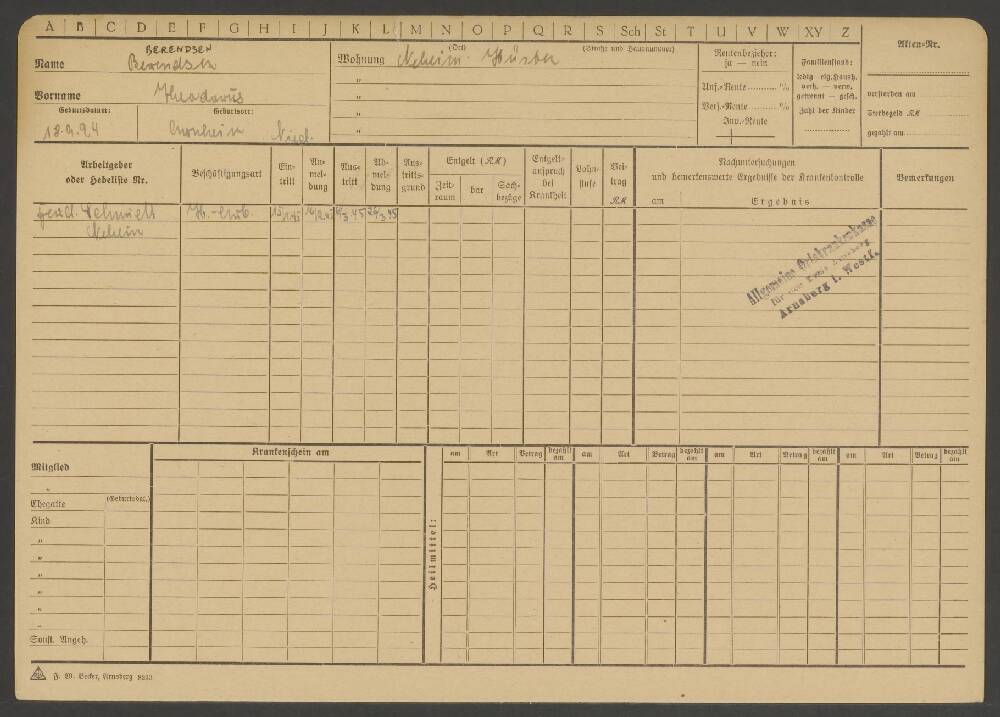 A B C D E F G H I J K L M N O P Q R S Sch St T U V W XY Z
BERENDSEN
Name Berendsen
Wohnung (Ort) (Straße und Hausnummer)
Neheim-Hüsten
"
"
"
Vorname Theodorus
Geburtsdatum: Geburtsort:
18.9.24
Rentenbezieher:
ja — nein
Unf.-Rente .......... %
Vers.-Rente .......... %
Inv.-Rente
Familienstand:
ledig eig. Haush.
verh. — verw.
getrennt — gesch.
Zahl der Kinder
Akten-Nr.
verstorben am
Sterbegeld RM
gezahlt am
Arbeitgeber
oder Hebeliste Nr.
Beschäftigungsart
Ein-
tritt
An-
mel-
dung
Aus-
tritt
Ab-
mel-
dung
Aus-
tritts-
grund
Entgelt (RM)
Zeit-
raum
bar
Sach-
bezüge
Entgelt-
anspruch
bei
Krankheit
Lohn-
stufe
Bei-
trag
RM
Nachuntersuchungen
und bemerkenswerte Ergebnisse der Krankenkontrolle
am Ergebnis
Bemerkungen
Ferd. Schmidt
Neheim
Allgemeine Ortskrankenkasse
für den Kreis Arnsberg
Arnsberg i. Westf.
Krankenschein am
Mitglied
"
Ehegatte (Geburtsdat.)
Kind
"
"
"
"
"
Sonst. Angeh.
Heilmittel:
am Art Betrag bezahlt am am Art Betrag bezahlt am am Art Betrag bezahlt am am Art Betrag bezahlt am
F. W. Becker, Arnsberg